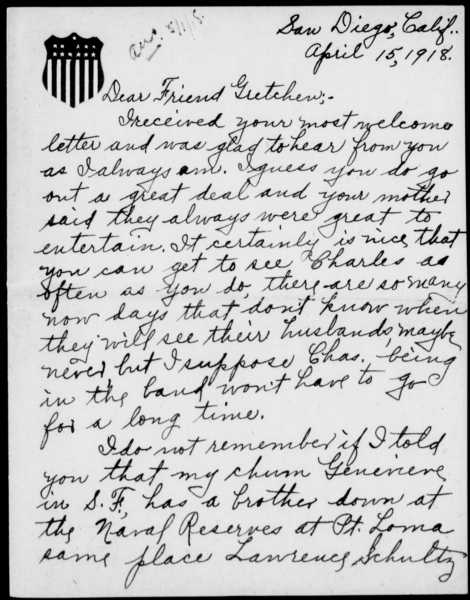 ans. 5/1/18.
San Diego, Calif..
April 15, 1918.
Dear Friend Gretchen;-
I received your most welcome
letter and was glad to hear from you
as I always am. I guess you do go
out a great deal and your mother
said they always were great to
entertain. It certainly is nice that
you can get to see Charles as
often as you do, there are so many
now days that don't know when
they will see their husbands, maybe
never, but I suppose Chas. being
in the band won't have to go
for a long time.
I do not remember if I told
you that my chum Genevieve
in S.F., has a brother down at
the Naval Reserves at Pt. Loma
same place Lawrence Schultz